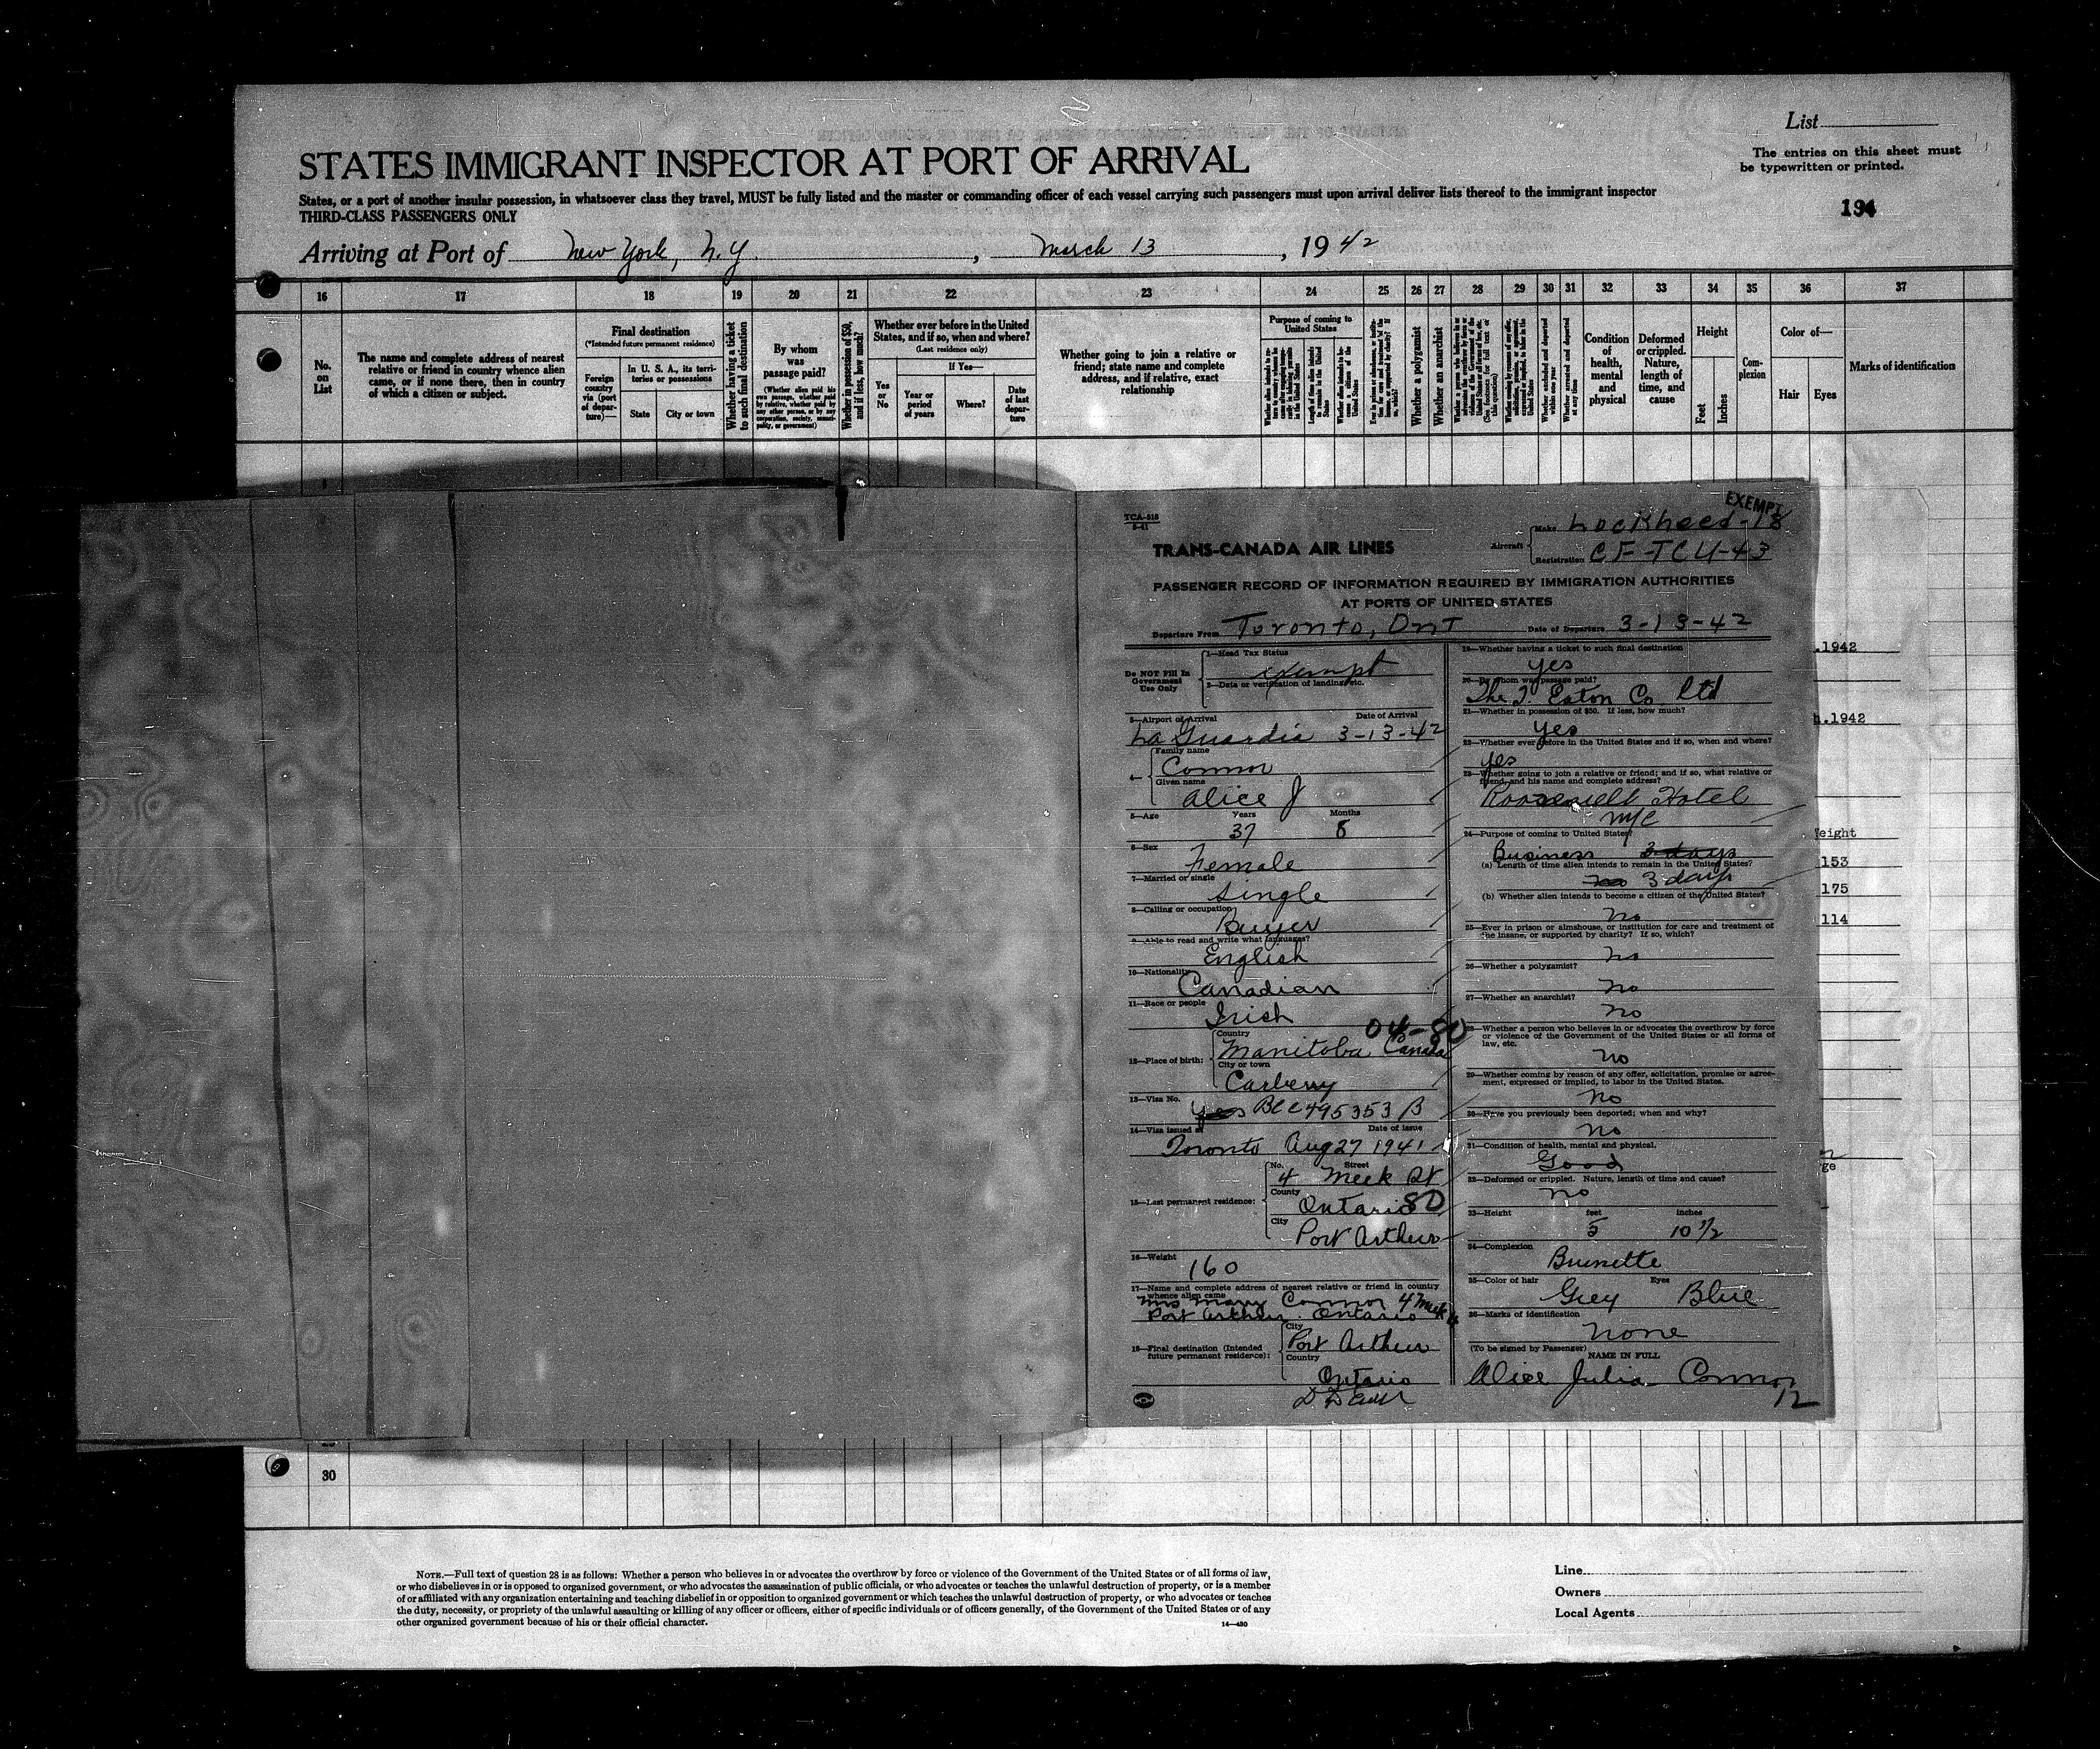 List
The entries on this sheet must
be typewritten or printed.
STATES IMMIGRANT INSPECTOR AT PORT OF ARRIVAL
States, or a port of another insular possession, in whatsoever class they travel, MUST be fully listed and the master or commanding officer of each vessel carrying such passengers must upon arrival deliver lists thereof to the immigrant inspector
THIRD-CLASS PASSENGERS ONLY
194
Arriving at Port of New York, N.Y., March 13, 1942
16 17 18 19 20 21 22 23 24 25 26 27 28 29 30 31 32 33 34 35 36 37
No. on List
The name and complete address of nearest relative or friend in country whence alien came, or if none there, then in country of which a citizen or subject.
Final destination
(*Intended future permanent residence)
Foreign country via (port of departure)—
In U. S. A., its territories or possessions
State
City or town
Whether having a ticket to such final destination
By whom was passage paid?
(Whether alien paid his own passage, whether paid by relative, whether paid by any other person, or by any corporation, society, municipality, or government)
Whether in possession of $50, and if less, how much?
Whether ever before in the United States, and if so, when and where?
(Last residence only)
If Yes—
Yes or No
Year or period of years
Where?
Date of last departure
Whether going to join a relative or friend; state name and complete address, and if relative, exact relationship
Purpose of coming to United States
Whether a polygamist
Whether an anarchist
Condition of health, mental and physical
Deformed or crippled. Nature, length of time, and cause
Height
Feet
Inches
Complexion
Color of—
Hair
Eyes
Marks of identification
TCA-518
EXEMPT
TRANS-CANADA AIR LINES
Aircraft
Make Lockheed-18
Registration CF-TCU-43
PASSENGER RECORD OF INFORMATION REQUIRED BY IMMIGRATION AUTHORITIES
AT PORTS OF UNITED STATES
Departure From Toronto, Ont Date of Departure 3-13-42
Do NOT Fill In Government Use Only
1—Head Tax Status
exempt
2—Data or verification of landing, etc.
3—Airport of Arrival Date of Arrival
La Guardia 3-13-42
4—
Family name
Connor
Given name
Alice J
5—Age Years Months
37 8
6—Sex
Female
7—Married or single
Single
8—Calling or occupation
Buyer
9—Able to read and write what languages?
English
10—Nationality
Canadian
11—Race or people
Irish
04-80
12—Place of birth:
Country
Manitoba Canada
City or town
Carberry
13—Visa No.
yes BCC495353 B
14—Visa issued at Date of issue
Toronto Aug 27 1941
15—Last permanent residence:
No. Street
4 Meek St
County
Ontario 80
City
Port Arthur
16—Weight
160
17—Name and complete address of nearest relative or friend in country whence alien came
Mrs Mary Connor 4 Meek
Port Arthur Ontario
18—Final destination (Intended future permanent residence):
City
Port Arthur
Country
Ontario
19—Whether having a ticket to such final destination
yes
20—By whom was passage paid?
The T. Eaton Co Ltd
21—Whether in possession of $50. If less, how much?
Yes
22—Whether ever before in the United States and if so, when and where?
yes
23—Whether going to join a relative or friend; and if so, what relative or friend, and his name and complete address?
Roosevelt Hotel
NYC
24—Purpose of coming to United States?
Business 3 days
(a) Length of time alien intends to remain in the United States?
no 3 days
(b) Whether alien intends to become a citizen of the United States?
no
25—Ever in prison or almshouse, or institution for care and treatment of the insane, or supported by charity? If so, which?
no
26—Whether a polygamist?
no
27—Whether an anarchist?
no
28—Whether a person who believes in or advocates the overthrow by force or violence of the Government of the United States or all forms of law, etc.
no
29—Whether coming by reason of any offer, solicitation, promise or agreement, expressed or implied, to labor in the United States.
no
30—Have you previously been deported; when and why?
no
31—Condition of health, mental and physical.
Good
32—Deformed or crippled. Nature, length of time and cause?
no
33—Height feet inches
5 10 1/2
34—Complexion
Brunette
35—Color of hair Eyes
Grey Blue
36—Marks of identification
none
(To be signed by Passenger)
NAME IN FULL
Alice Julia Connor
12
.1942
.1942
eight
153
175
114
ge
30
NOTE.—Full text of question 28 is as follows: Whether a person who believes in or advocates the overthrow by force or violence of the Government of the United States or of all forms of law,
or who disbelieves in or is opposed to organized government, or who advocates the assassination of public officials, or who advocates or teaches the unlawful destruction of property, or is a member
of or affiliated with any organization entertaining and teaching disbelief in or opposition to organized government or which teaches the unlawful destruction of property, or who advocates or teaches
the duty, necessity, or propriety of the unlawful assaulting or killing of any officer or officers, either of specific individuals or of officers generally, of the Government of the United States or of any
other organized government because of his or their official character.
14—430
Line
Owners
Local Agents